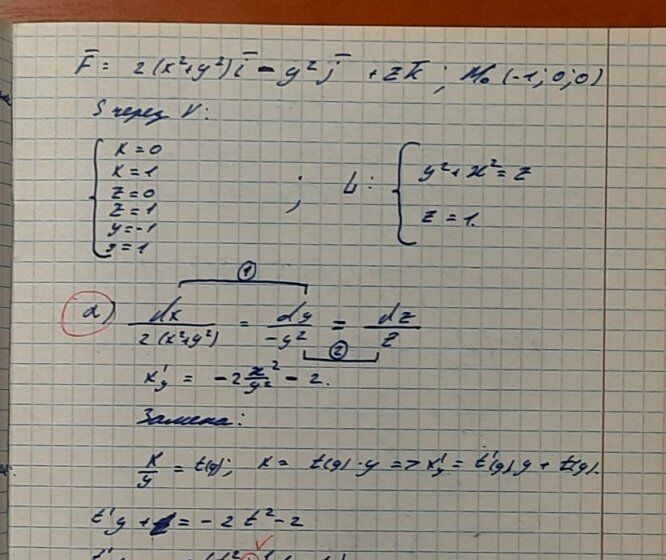 F̅ = 2(x²+y²)i̅ − y² j̅ + z k̅ ; M₀(-1; 0; 0)
S через V:
{ x = 0
x = 1
z = 0
z = 1
y = -1
y = 1
; L: { y² + x² = z
z = 1.
①
а) dx / 2(x²+y²) = dy / -y² = dz / z
②
x'y = -2 x²/y² - 2.
Замена:
x/y = t(y); x = t(y)·y => x'y = t'(y)y + t(y).
t'y + t = -2t² - 2